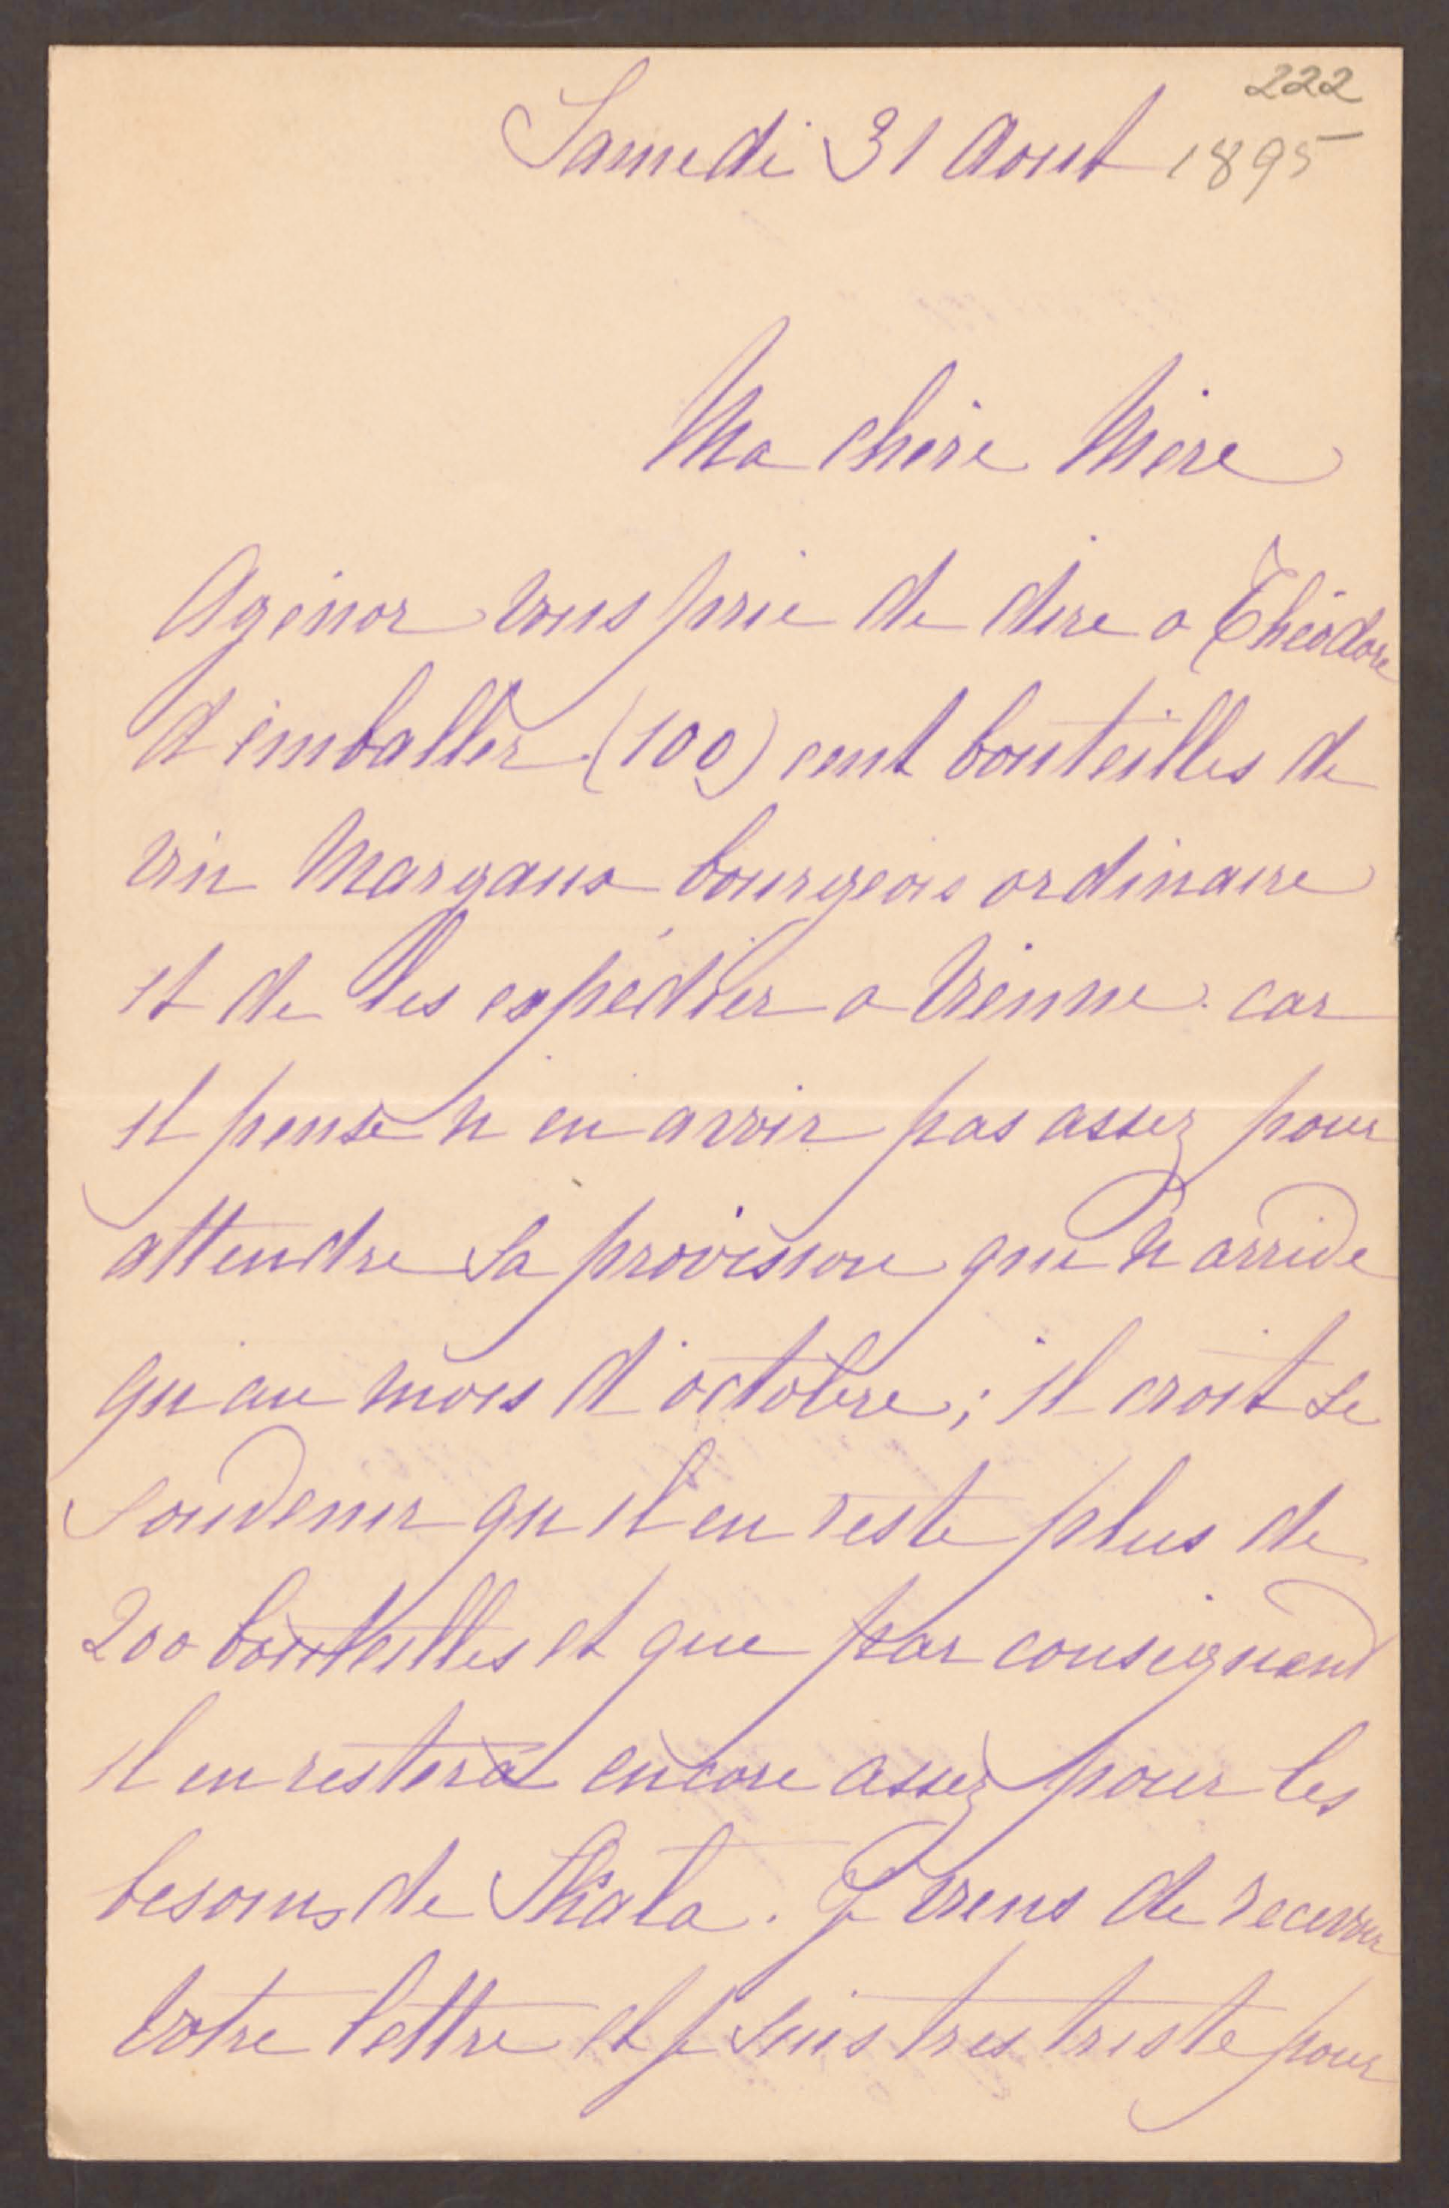 222
Samedi 31 Aout 1895
Ma chère Mère
Agénor vous prie de dire a Théodore
d'emballer (100) cent bouteilles de
vin Margaux bourgeois ordinaire
et de les expédier a Vienne. car
il pense n'en avoir pas assez pour
attendre sa provision qui n'arrive
qu'au mois d'octobre; il croit se
souvenir qu'il en reste plus de
200 bouteilles et que par conséquend
il en restera encore assez pour les
besoins de Skala. Je viens de recevoir
votre lettre et je suis très triste pour